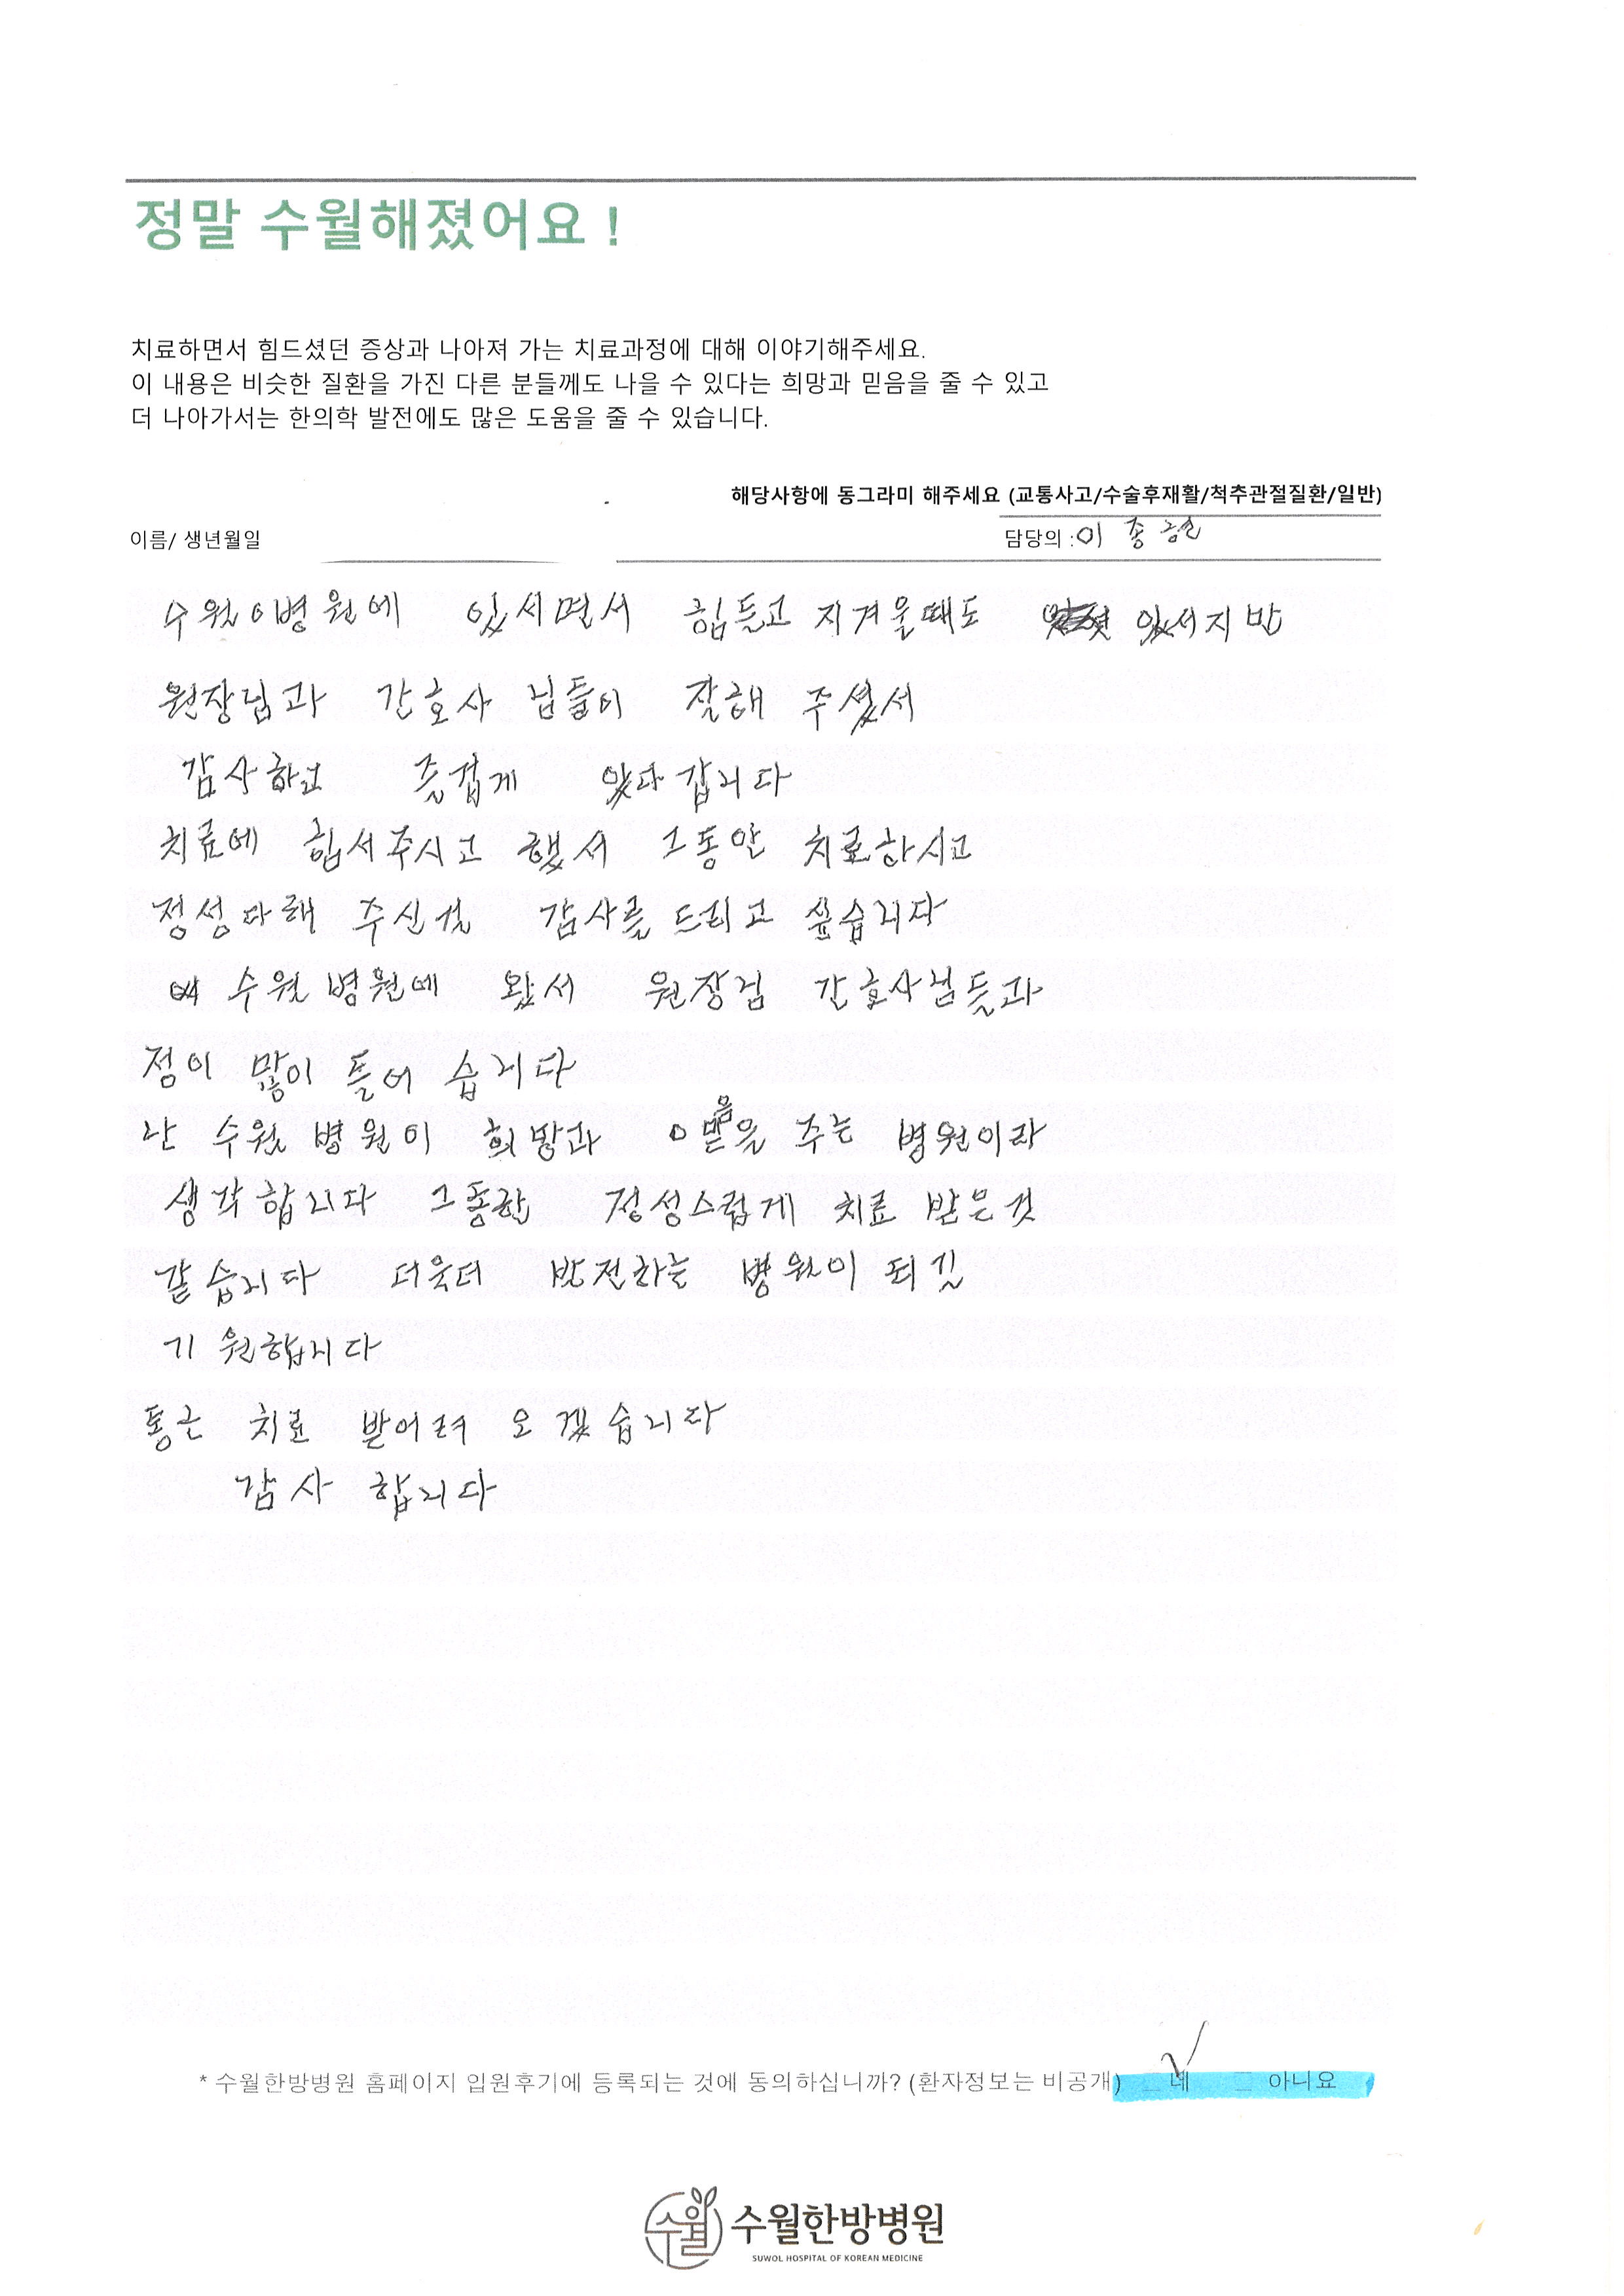 정말 수월해졌어요 !
치료하면서 힘드셨던 증상과 나아져 가는 치료과정에 대해 이야기해주세요.
이 내용은 비슷한 질환을 가진 다른 분들께도 나을 수 있다는 희망과 믿음을 줄 수 있고
더 나아가서는 한의학 발전에도 많은 도움을 줄 수 있습니다.
해당사항에 동그라미 해주세요 (교통사고/수술후재활/척추관절질환/일반)
이름/ 생년월일 담당의 : 이종현
수월이병원에 있서면서 힘들고 지겨울때도 있서지반
원장님과 간호사 님들이 잘해 주셨서
감사하고 즐겁게 있다 갑니다
치료에 힘서주시고 했서 그동안 치료하시고
정성다해 주신걸 감사를 드리고 싶습니다
수월병원에 왔서 원장님 간호사님들과
정이 많이 들어 습니다
난 수월 병원이 희망과 믿음을 주는 병원이라
생각합니다 그동한 정성스럽게 치료 받은것
같습니다 더욱더 발전하는 병원이 되길
기원합니다
통근 치료 받어러 오겠습니다
감사 합니다
* 수월한방병원 홈페이지 입원후기에 등록되는 것에 동의하십니까? (환자정보는 비공개) □ 네 □ 아니요
수월 수월한방병원
SUWOL HOSPITAL OF KOREAN MEDICINE